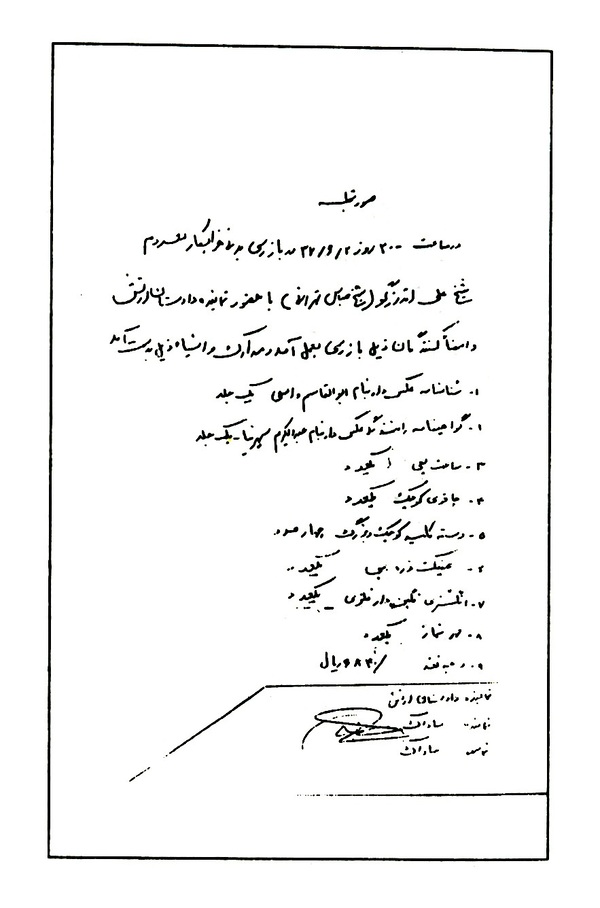 صورتجلسه
در ساعت ۲۰۰۰ روز ۳۷/۹/۲ در بازرسی بدنی خرابکار معدوم
شیخ علی اندرزگو (شیخ عباس تهرانی) با حضور نماینده دادستان ارتش
و امضاء کنندگان ذیل بازرسی بعمل آمد و مدارک و اشیاء ذیل بدست آمد
۱. شناسنامه عکس دار بنام ابوالقاسم واسعی یک جلد
۲. گواهینامه رانندگی عکس دار بنام عبدالکریم سپهرنیا - یک جلد
۳- ساعت مچی یکعدد
۴. چاقوی کوچک یکعدد
۵- دسته کلید کوچک و بزرگ چهار عدد
۶- عینک ذره بینی یکعدد
۷- انگشتری نگین دار فلزی یکعدد
۸- مهر نماز یکعدد
۹- وجه نقد ریال
نماینده دادرسی ارتش
نماینده ساواک
نماینده ساواک